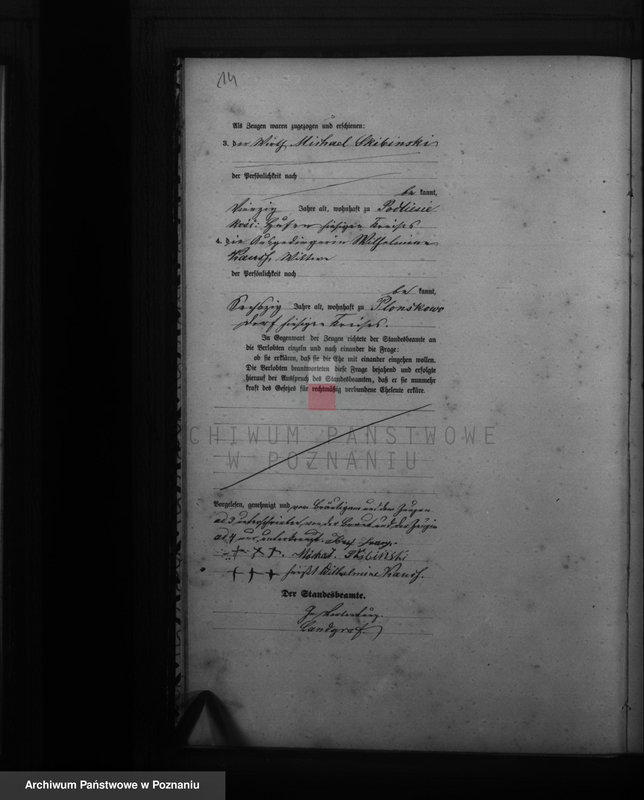 14
Als Zeugen waren zugezogen und erschienen:
3. der Wirth Michael Skibinski
der Persönlichkeit nach
be kannt,
vierzig Jahre alt, wohnhaft zu Podlesie
kosc: Hufen hiesigen Kreises
4. die Ausgedingerin Wilhelmine
Wittwe
der Persönlichkeit nach
be kannt,
sechszig Jahre alt, wohnhaft zu Plonskowo
Dorf hiesigen Kreises.
In Gegenwart der Zeugen richtete der Standesbeamte an
die Verlobten einzeln und nach einander die Frage:
ob sie erklären, daß sie die Ehe mit einander eingehen wollen.
Die Verlobten beantworteten diese Frage bejahend und erfolgte
hierauf der Ausspruch des Standesbeamten, daß er sie nunmehr
kraft des Gesetzes für rechtmäßig verbundene Eheleute erkläre.
ARCHIWUM PAŃSTWOWE
W POZNANIU
Vorgelesen, genehmigt und vom Bräutigam und dem Zeugen
ad 3 unterschrieben, von der Braut und der Zeugin
ad 4 unterkreuzt.
+ + +. Michał Skibiński
+ + + heißt Wilhelmine
Der Standesbeamte.
In Vertretung.
Landgraf
Archiwum Państwowe w Poznaniu